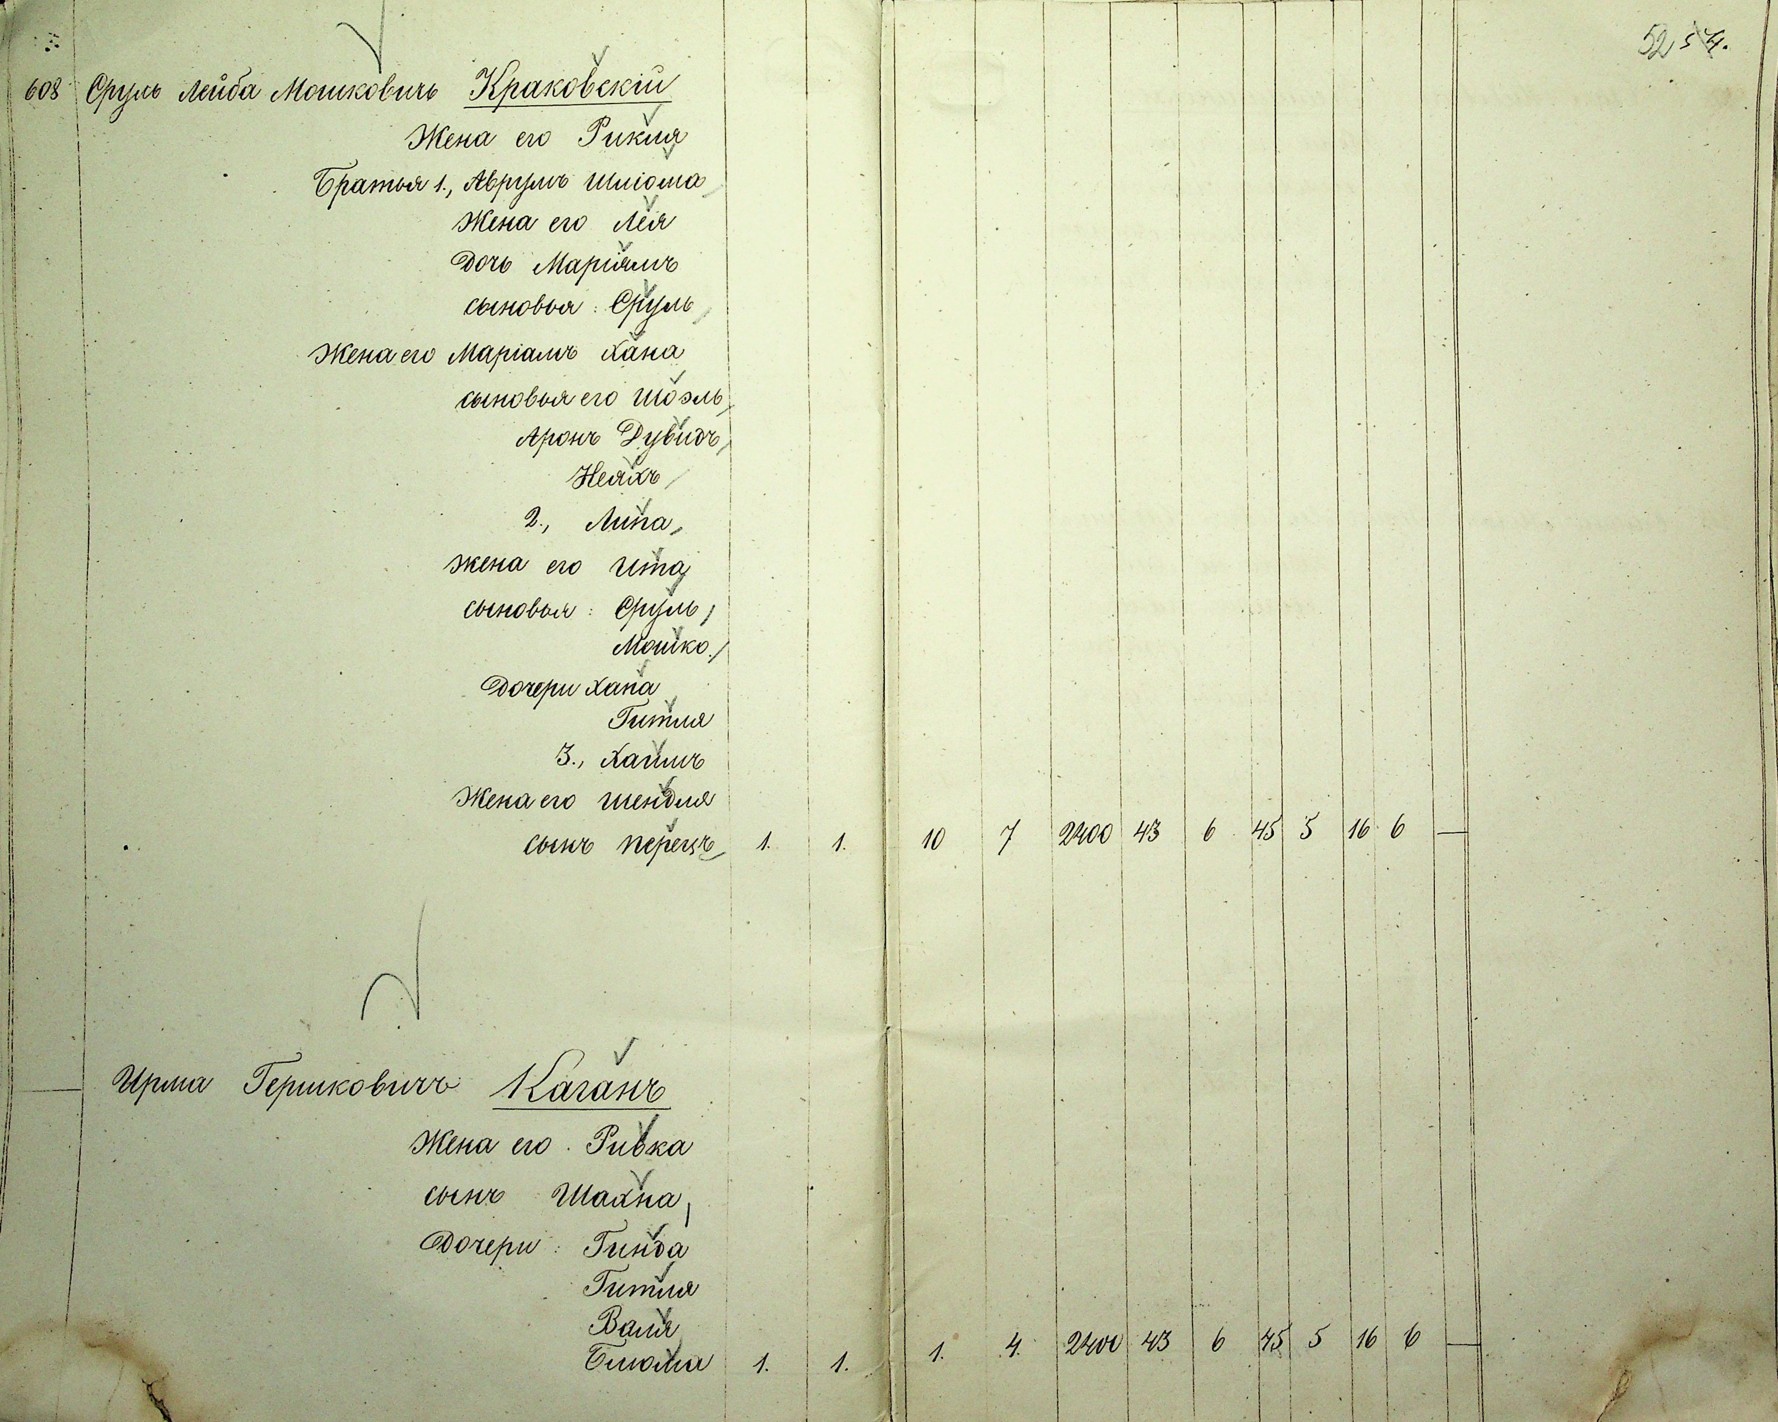 52 54.
608 Сруль Лейба Мошковичъ Краковскій
Жена его Рикля
Братья 1., Аврумъ Шліома
Жена его Лея
Дочь Маріямъ
сыновья: Сруль
Жена его Маріамъ Хана
сыновья его Шоэль
Аронъ Дувидъ
Неяхъ
2., Липа
жена его Ита
сыновья: Сруль
Мошко
Дочери Хана
Гитля
3., Хаимъ
Жена его Шендля
сынъ Перецъ 1. 1. 10 7 2400 43 6 45 5 16 6 —
Ирма Гершковичъ Каганъ
Жена его Ривка
сынъ Шахна
Дочери: Гинда
Гитля
Валя
Блюма 1. 1. 1. 4. 2400 43 6 45 5 16 6 —